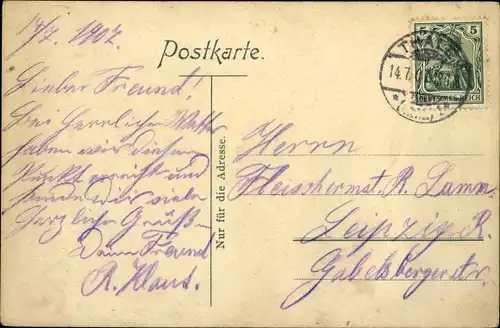 14/7. 1907.
Postkarte.
Lieber Freund!
Bei herrlichem Wetter
haben wir diesen
Punkt erreicht und
sende Dir viele
herzliche Grüße.
Dein Freund
R. Klaus.
Nur für die Adresse.
5 5
DEUTSCHES REICH
14.7.
Herrn
Fleischermst. R. Lamm
Leipzig R.
Gabelsbergerstr.